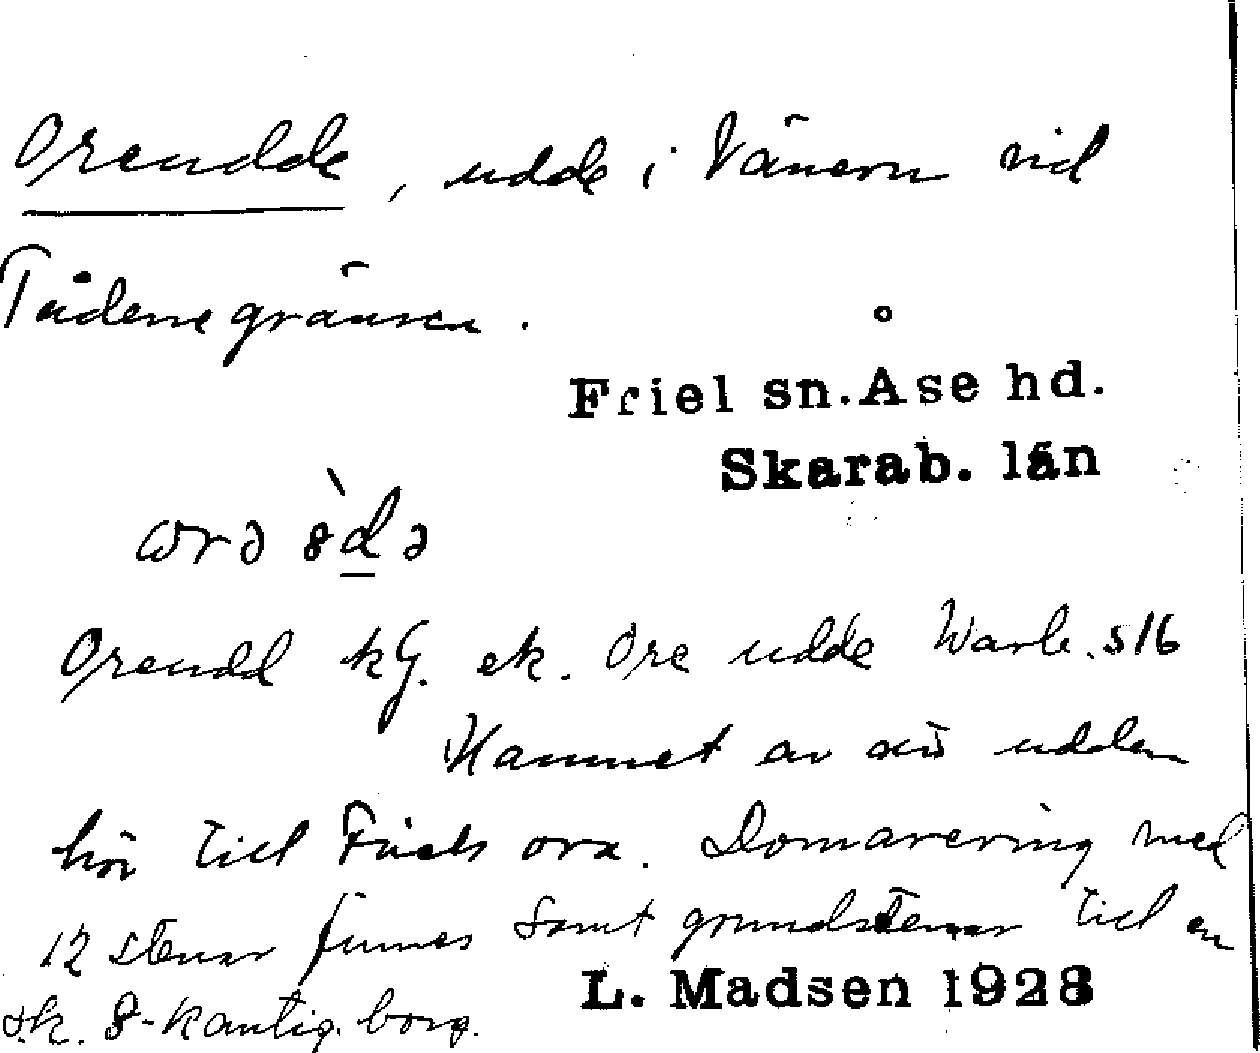 Oreudde, udde i Vänern vid
Tådenegränsen.
Friel sn. Åse hd.
Skarab. län
Oreudd kG. ek. Ore udde Warb. s16
Namnet av att udden
hör till Friels ora. Domarering med
12 stenar finnes samt grundstenar till en
s.k. 8-kantig borg.
L. Madsen 1928